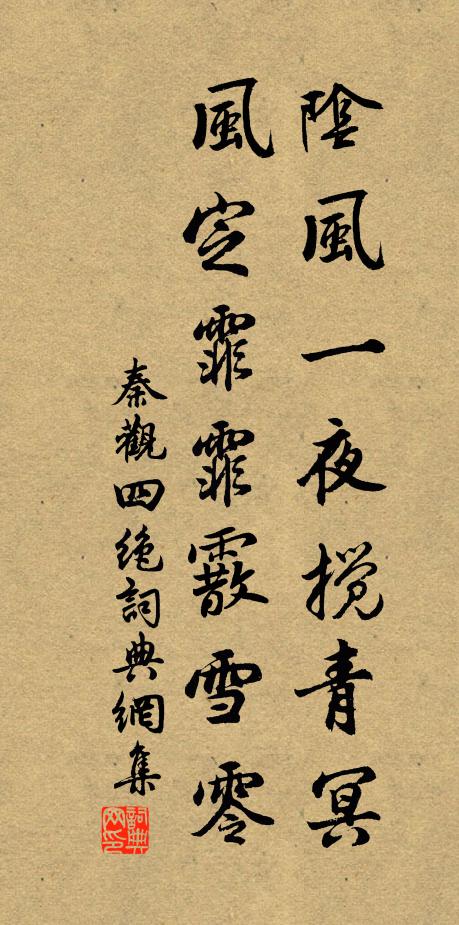 陰風一夜搅青冥
風定霏霏霰雪零
秦觀四绝詞典網集
詞典網印